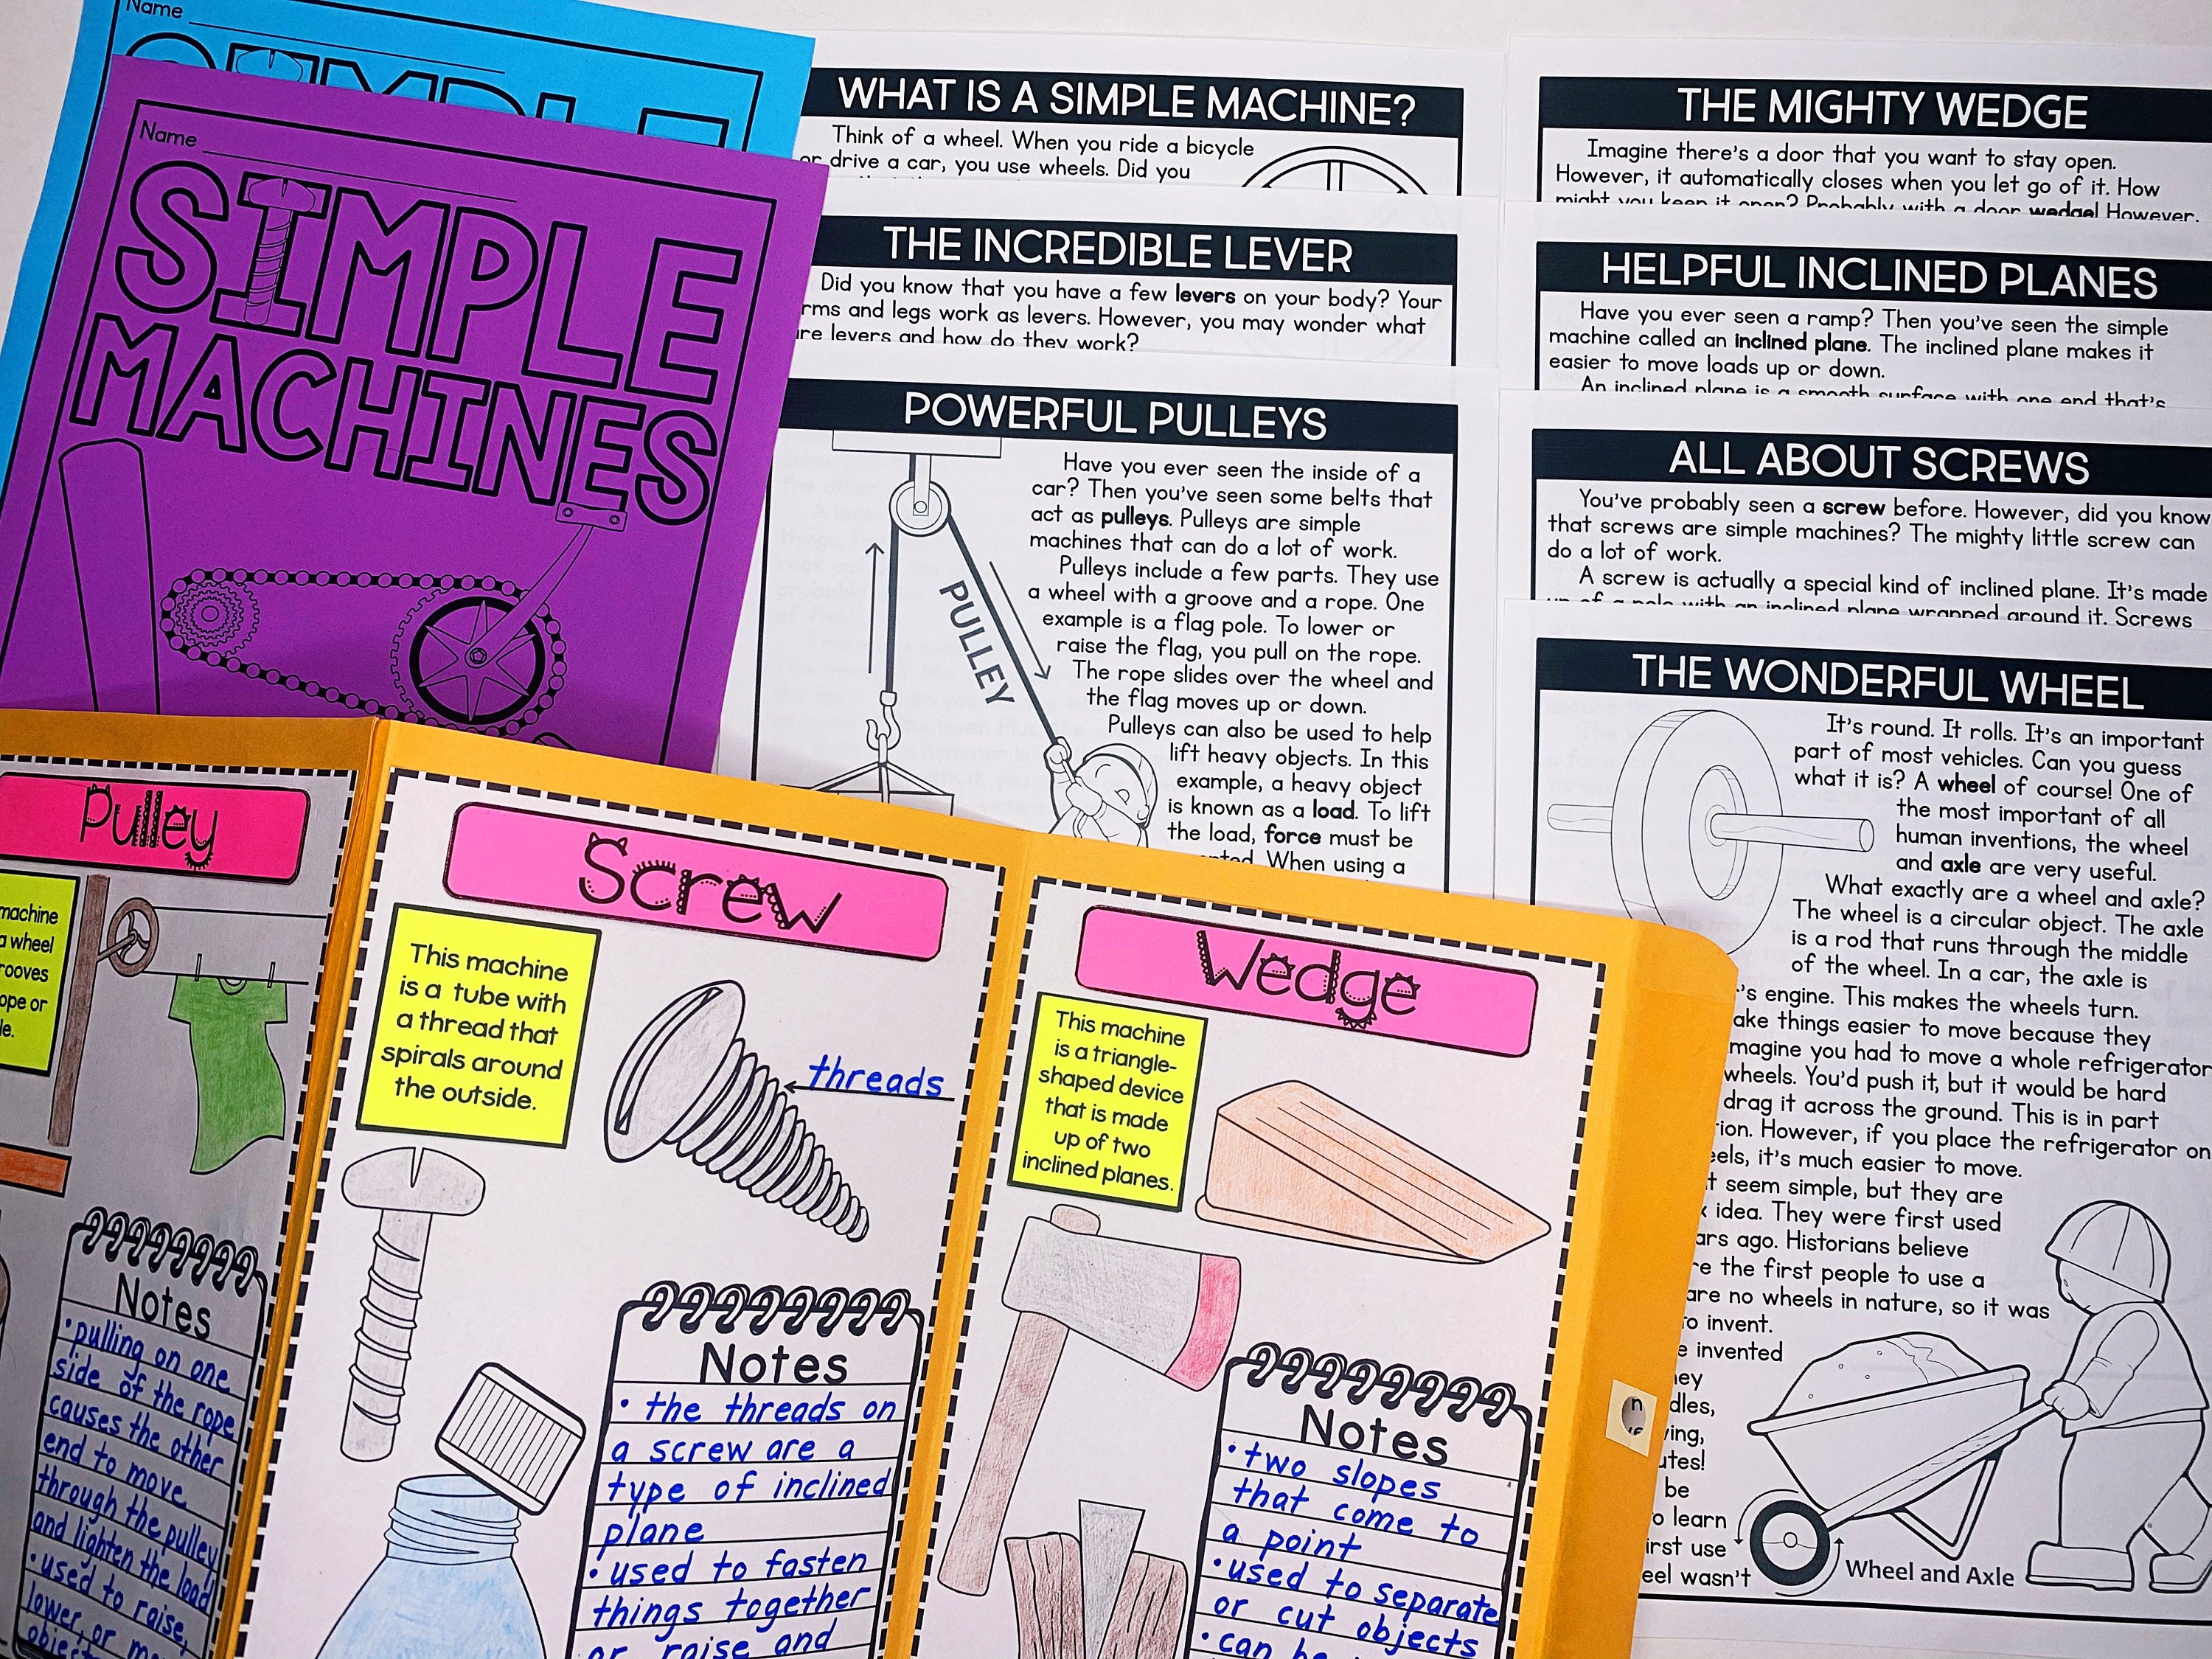 Name
SIMPLE
Name
SIMPLE
MACHINES
WHAT IS A SIMPLE MACHINE?
Think of a wheel. When you ride a bicycle
or drive a car, you use wheels. Did you
THE INCREDIBLE LEVER
Did you know that you have a few levers on your body? Your
rms and legs work as levers. However, you may wonder what
re levers and how do they work?
POWERFUL PULLEYS
Have you ever seen the inside of a
car? Then you've seen some belts that
act as pulleys. Pulleys are simple
machines that can do a lot of work.
Pulleys include a few parts. They use
a wheel with a groove and a rope. One
example is a flag pole. To lower or
raise the flag, you pull on the rope.
The rope slides over the wheel and
the flag moves up or down.
Pulleys can also be used to help
lift heavy objects. In this
example, a heavy object
is known as a load. To lift
the load, force must be
ted. When using a
PULLEY
THE MIGHTY WEDGE
Imagine there's a door that you want to stay open.
However, it automatically closes when you let go of it. How
might you keep it open? Probably with a door wedge! However,
HELPFUL INCLINED PLANES
Have you ever seen a ramp? Then you've seen the simple
machine called an inclined plane. The inclined plane makes it
easier to move loads up or down.
An inclined plane is a smooth surface with one end that's
ALL ABOUT SCREWS
You've probably seen a screw before. However, did you know
that screws are simple machines? The mighty little screw can
do a lot of work.
A screw is actually a special kind of inclined plane. It's made
up of a pole with an inclined plane wrapped around it. Screws
THE WONDERFUL WHEEL
It's round. It rolls. It's an important
part of most vehicles. Can you guess
what it is? A wheel of course! One of
the most important of all
human inventions, the wheel
and axle are very useful.
What exactly are a wheel and axle?
The wheel is a circular object. The axle
is a rod that runs through the middle
of the wheel. In a car, the axle is
's engine. This makes the wheels turn.
ake things easier to move because they
magine you had to move a whole refrigerator
wheels. You'd push it, but it would be hard
drag it across the ground. This is in part
tion. However, if you place the refrigerator on
eels, it's much easier to move.
t seem simple, but they are
x idea. They were first used
ars ago. Historians believe
re the first people to use a
are no wheels in nature, so it was
to invent.
e invented
ey
dles,
ving,
utes!
be
o learn
irst use
eel wasn't
Wheel and Axle
Pulley
machine
a wheel
rooves
ope or
le.
Notes
• pulling on one
side of the rope
causes the other
end to move
through the pulley
and lighten the load
• used to raise,
lower, or mo
objec
Screw
This machine
is a tube with
a thread that
spirals around
the outside.
threads
Notes
• the threads on
a screw are a
type of inclined
plane
• used to fasten
things together
or raise and
Wedge
This machine
is a triangle-
shaped device
that is made
up of two
inclined planes.
Notes
• two slopes
that come to
a point
• used to separate
or cut objects
• can be